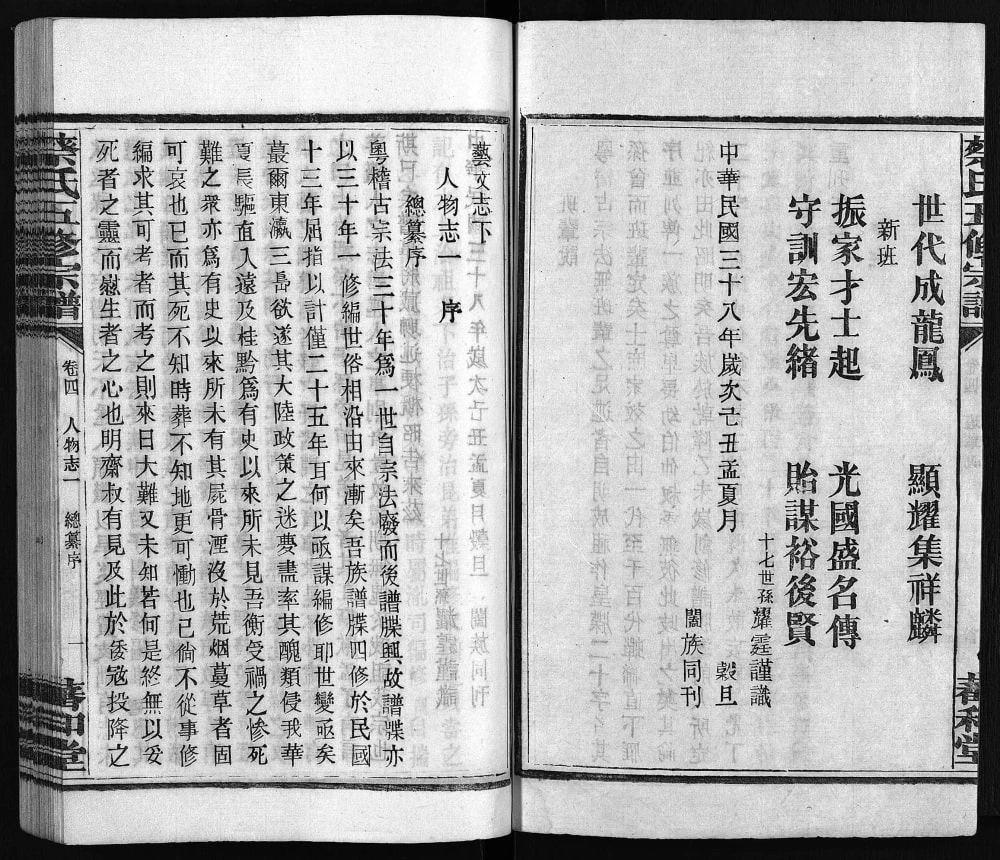 世代成龍鳳 顯耀集祥麟
新班
振家才士起 光國盛名傳
守訓宏先緒 貽謀裕後賢
中華民國三十八年歲次己丑孟夏月 穀旦
十七世孫耀霆謹識
闔族同刊
藝文志下
人物志一 序
總纂序
粵稽古宗法三十年爲一世自宗法廢而後譜牒興故譜諜亦
以三十年一修編世俗相沿由來漸矣吾族譜牒四修於民國
十三年屈指以計僅二十五年耳何以亟謀編修耶世變亟矣
蕞爾東瀛三島欲遂其大陸政策之迷夢盡率其醜類侵我華
夏長驅直入遠及桂黔爲有史以來所未見吾衡受禍之慘死
難之衆亦爲有史以來所未有其屍骨湮沒於荒烟蔓草者固
可哀也已而其死不知時葬不知地更可慟也已倘不從事修
編求其可考者而考之則來日大難又未知若何是終無以妥
死者之靈而慰生者之心也明齋叔有見及此於倭寇投降之
蔡氏五修宗譜
卷四 人物志一 總纂序 一
蔡氏五修宗譜